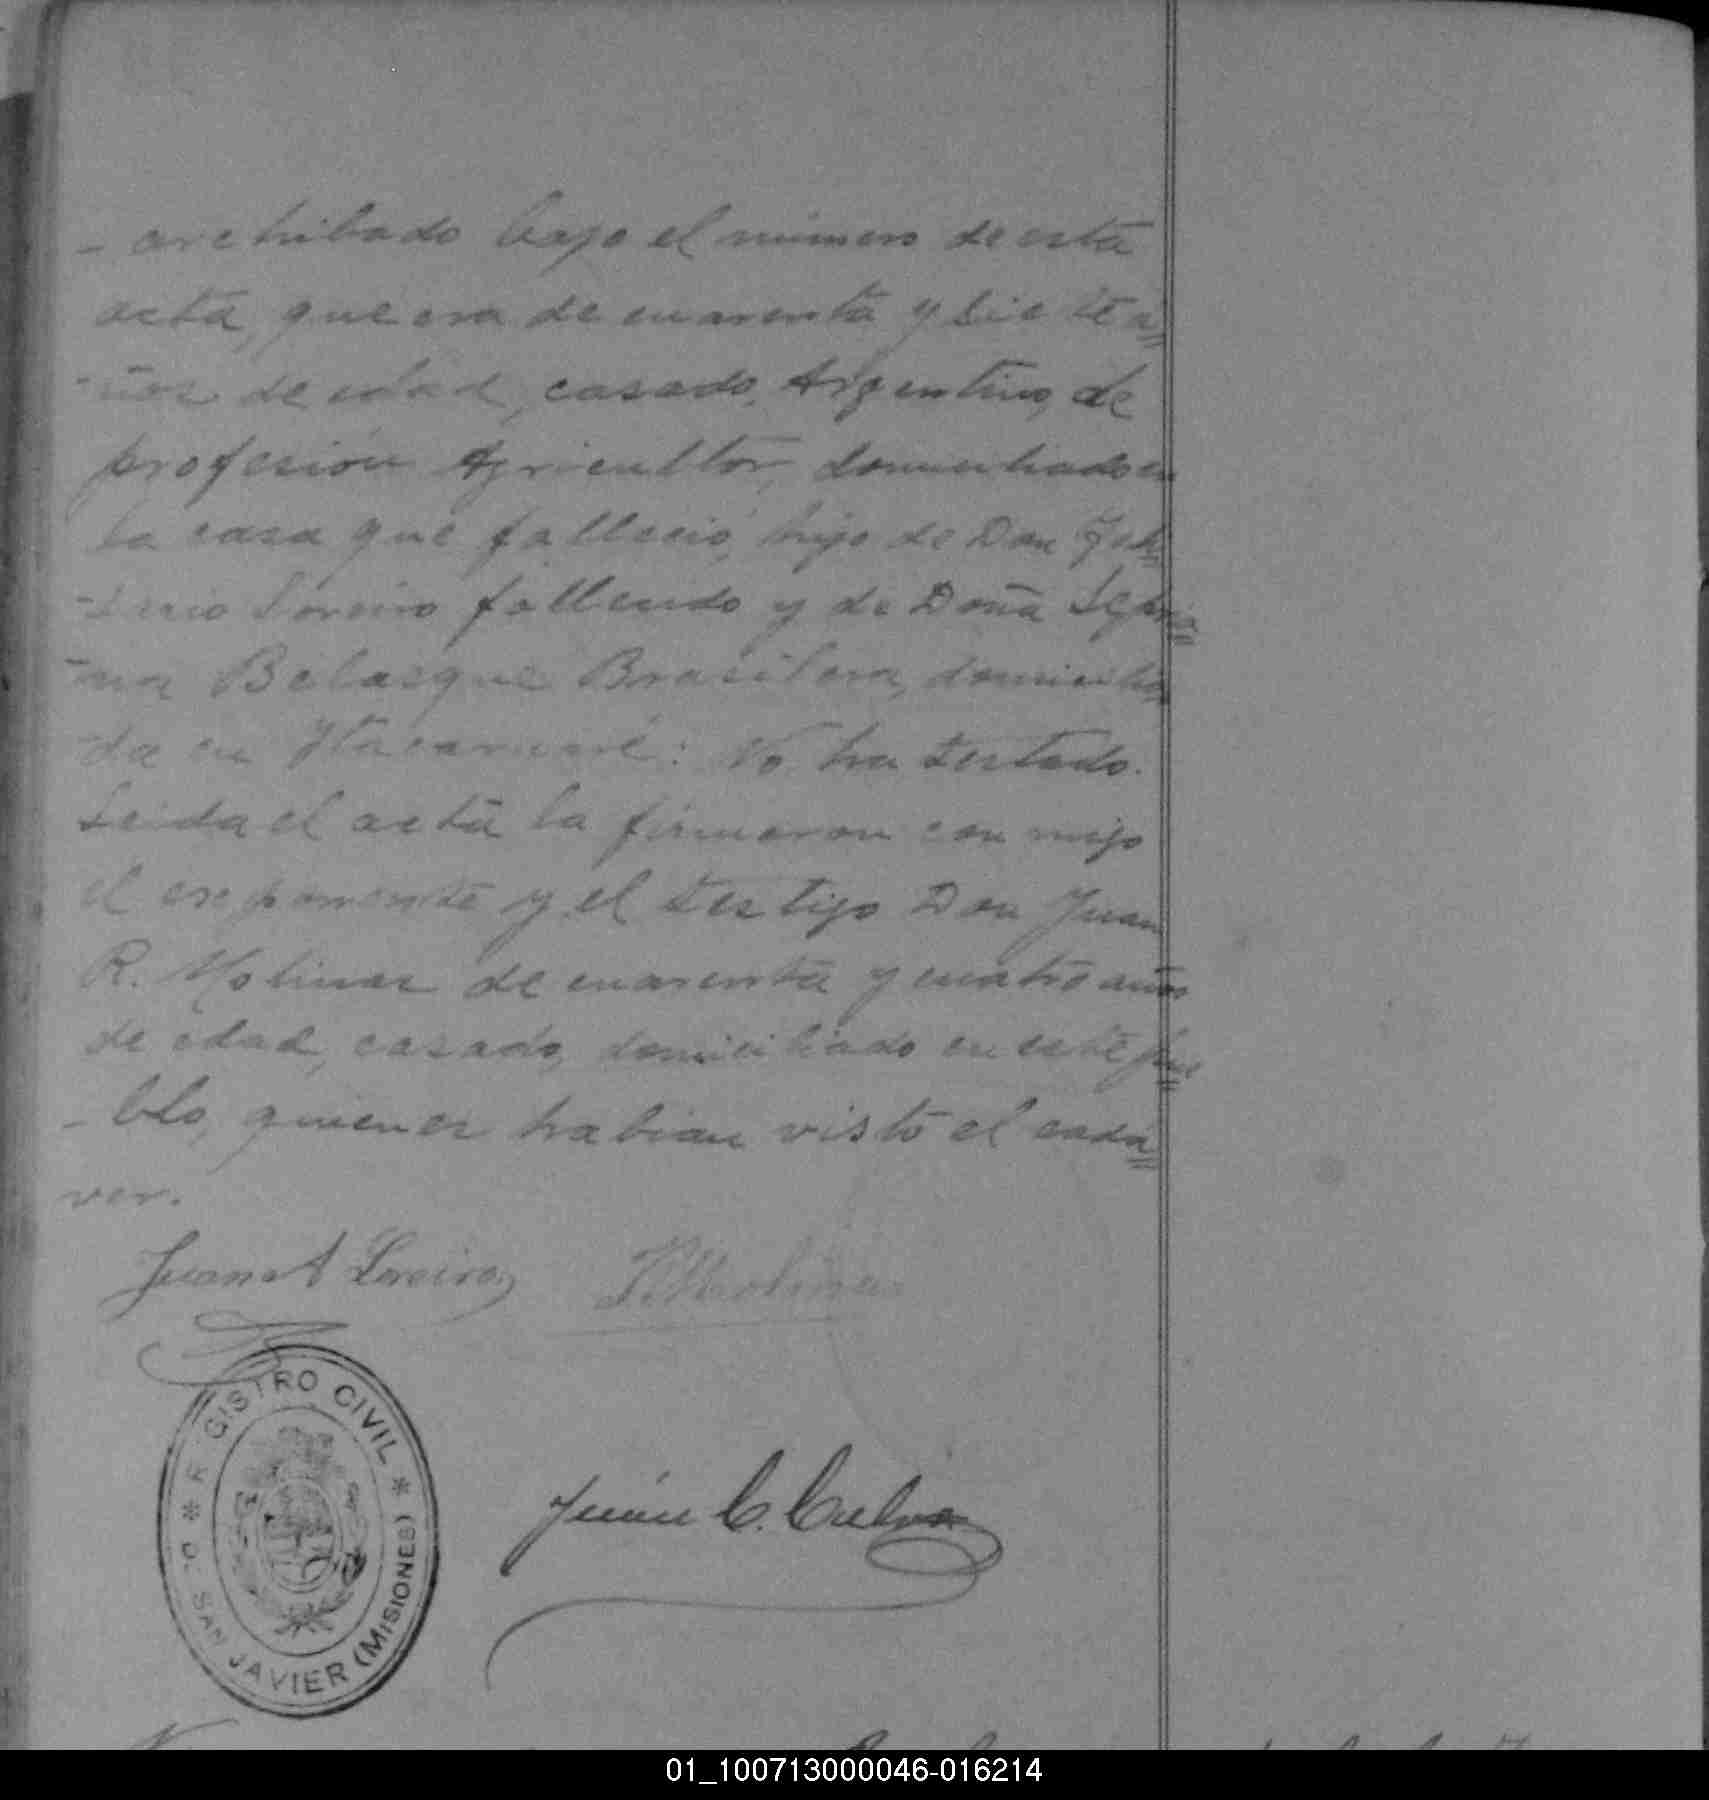 - archibado bajo el número de esta
acta, que era de cuarenta y siete a=
-ños de edad, casado, Argentino, de
profesión Agricultor, domiciliado en
la casa que falleció, hijo de Don
Loreiro fallecido y de Doña
-na Belasque Brasilera, domicilia=
-da en Itacaruaré: No ha testado.
Leida el acta la firmaron con migo
el exponente y el testigo Don Juan
R. Molinas de cuarenta y cuatro años
de edad, casado, domiciliado en este pue=
-blo, quienes habian visto el cada=
ver.
Juan A Loreiro
Molinas
REGISTRO CIVIL * SAN JAVIER (MISIONES) *
Juan C.
01_100713000046-016214